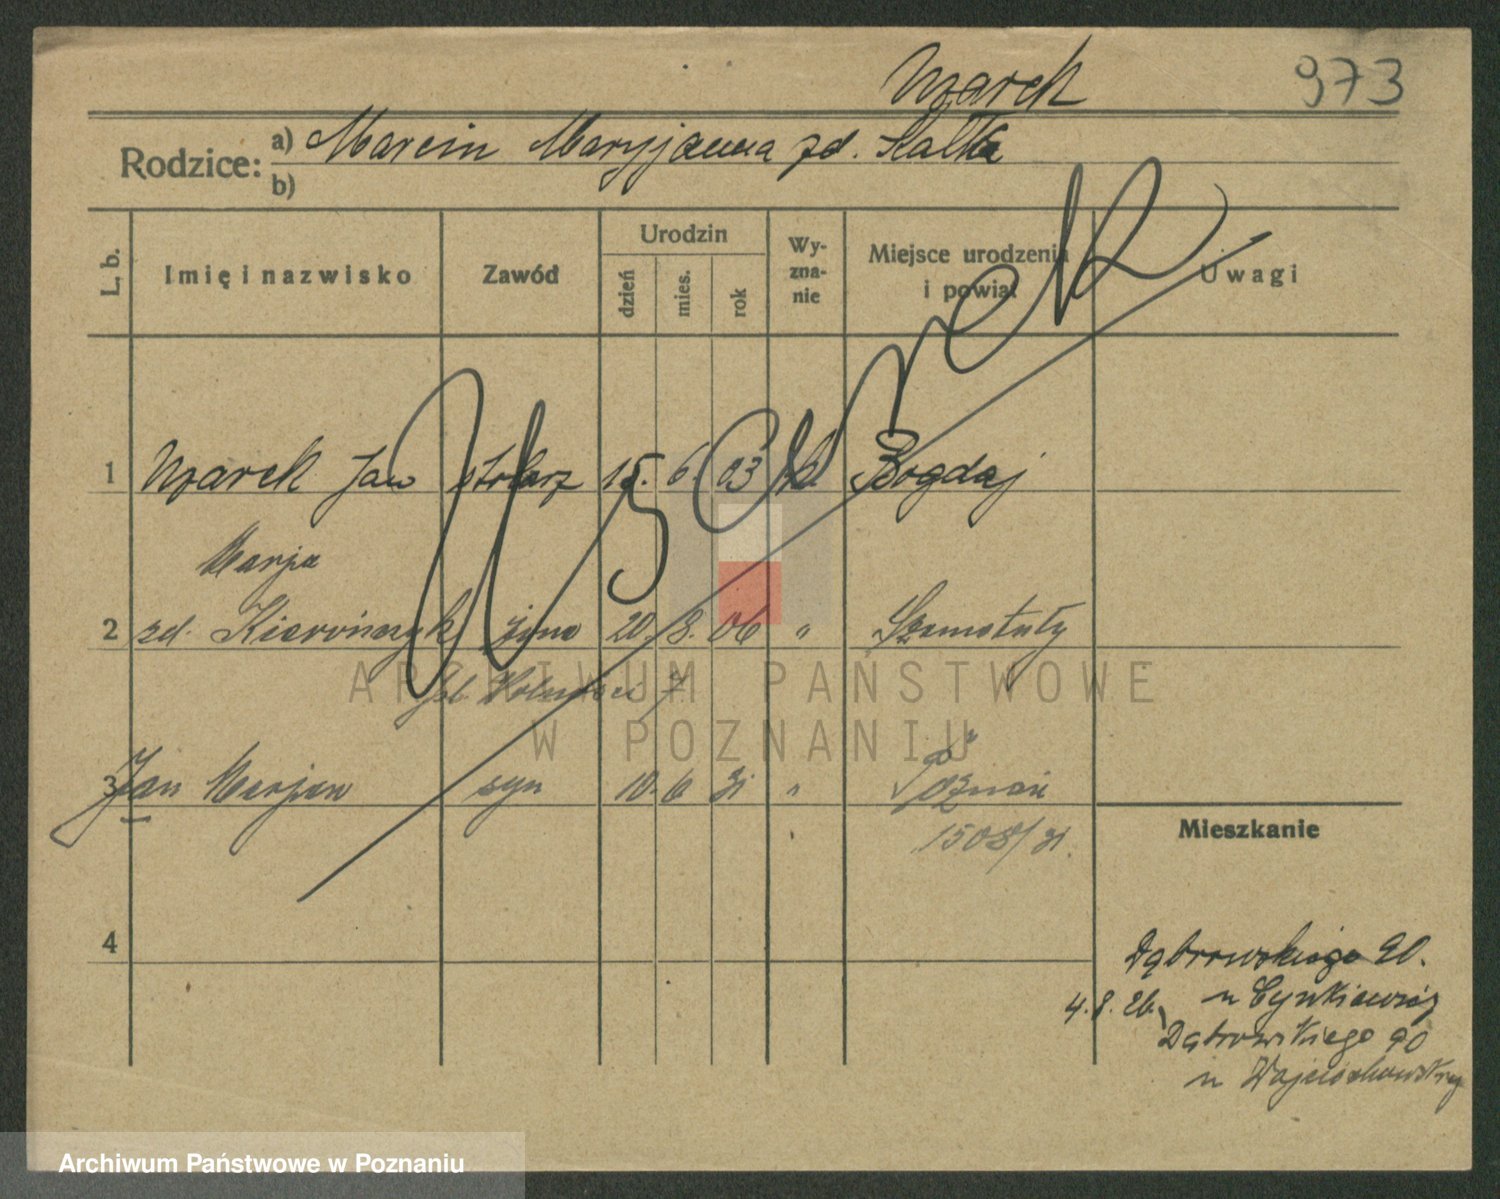 Marek 973
Rodzice: a) Marcin Maryjanna zd. Kałka
b)
L. b. Imię i nazwisko Zawód Urodzin dzień mies. rok Wyznanie Miejsce urodzenia i powiat Uwagi
Marek
1 Marek Jan stolarz 15. 6. 03 kat Bogdaj
Marja
2 zd. żona 20. 8. 06 " Szamotuły
7
3 Jan Marjan syn 10. 6 31 " Poznań
1508/31.
Mieszkanie
4
Dąbrowskiego 90.
4. 8. 26. u
Dąbrowskiego 90
u Wojciechowskiej
ARCHIWUM PAŃSTWOWE
W POZNANIU
Archiwum Państwowe w Poznaniu